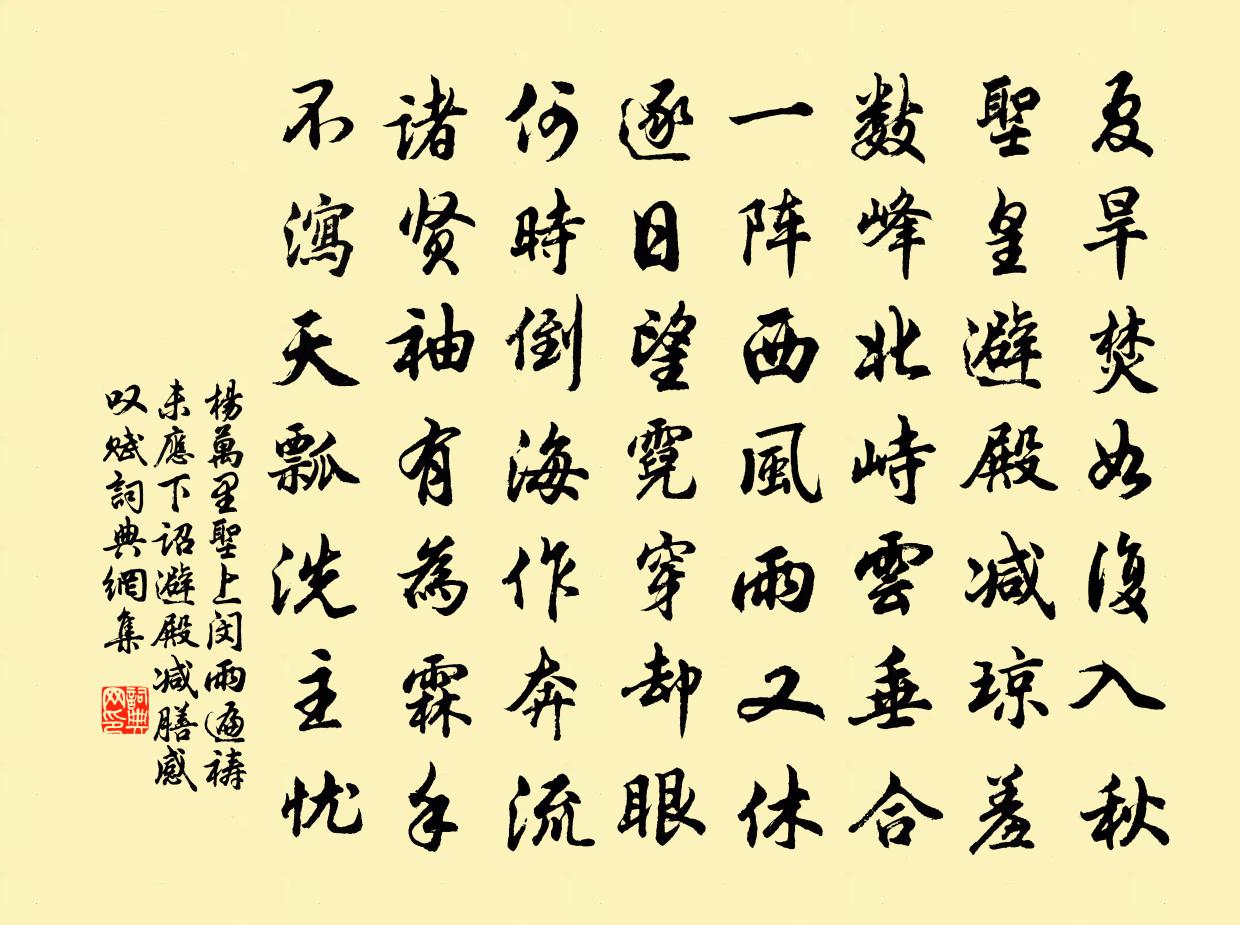 夏旱焚如復入秋
聖皇避殿减琼羞
数峰北峙雲垂合
一阵西風雨又休
逐日望霓穿却眼
何時倒海作奔流
诸贤袖有為霖手
不瀉天瓢洗主忧
楊萬里聖上闵雨遍祷
未應下诏避殿减膳感
叹赋詞典網集
詞典
网印